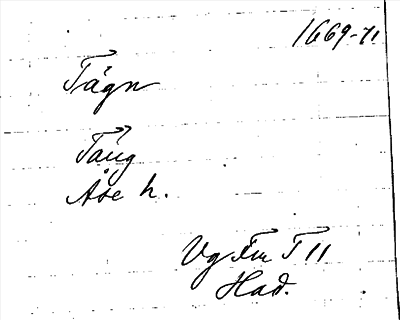 1669-71
Tågn
Tång
Åse h.
Vg Fm T 11
Had.